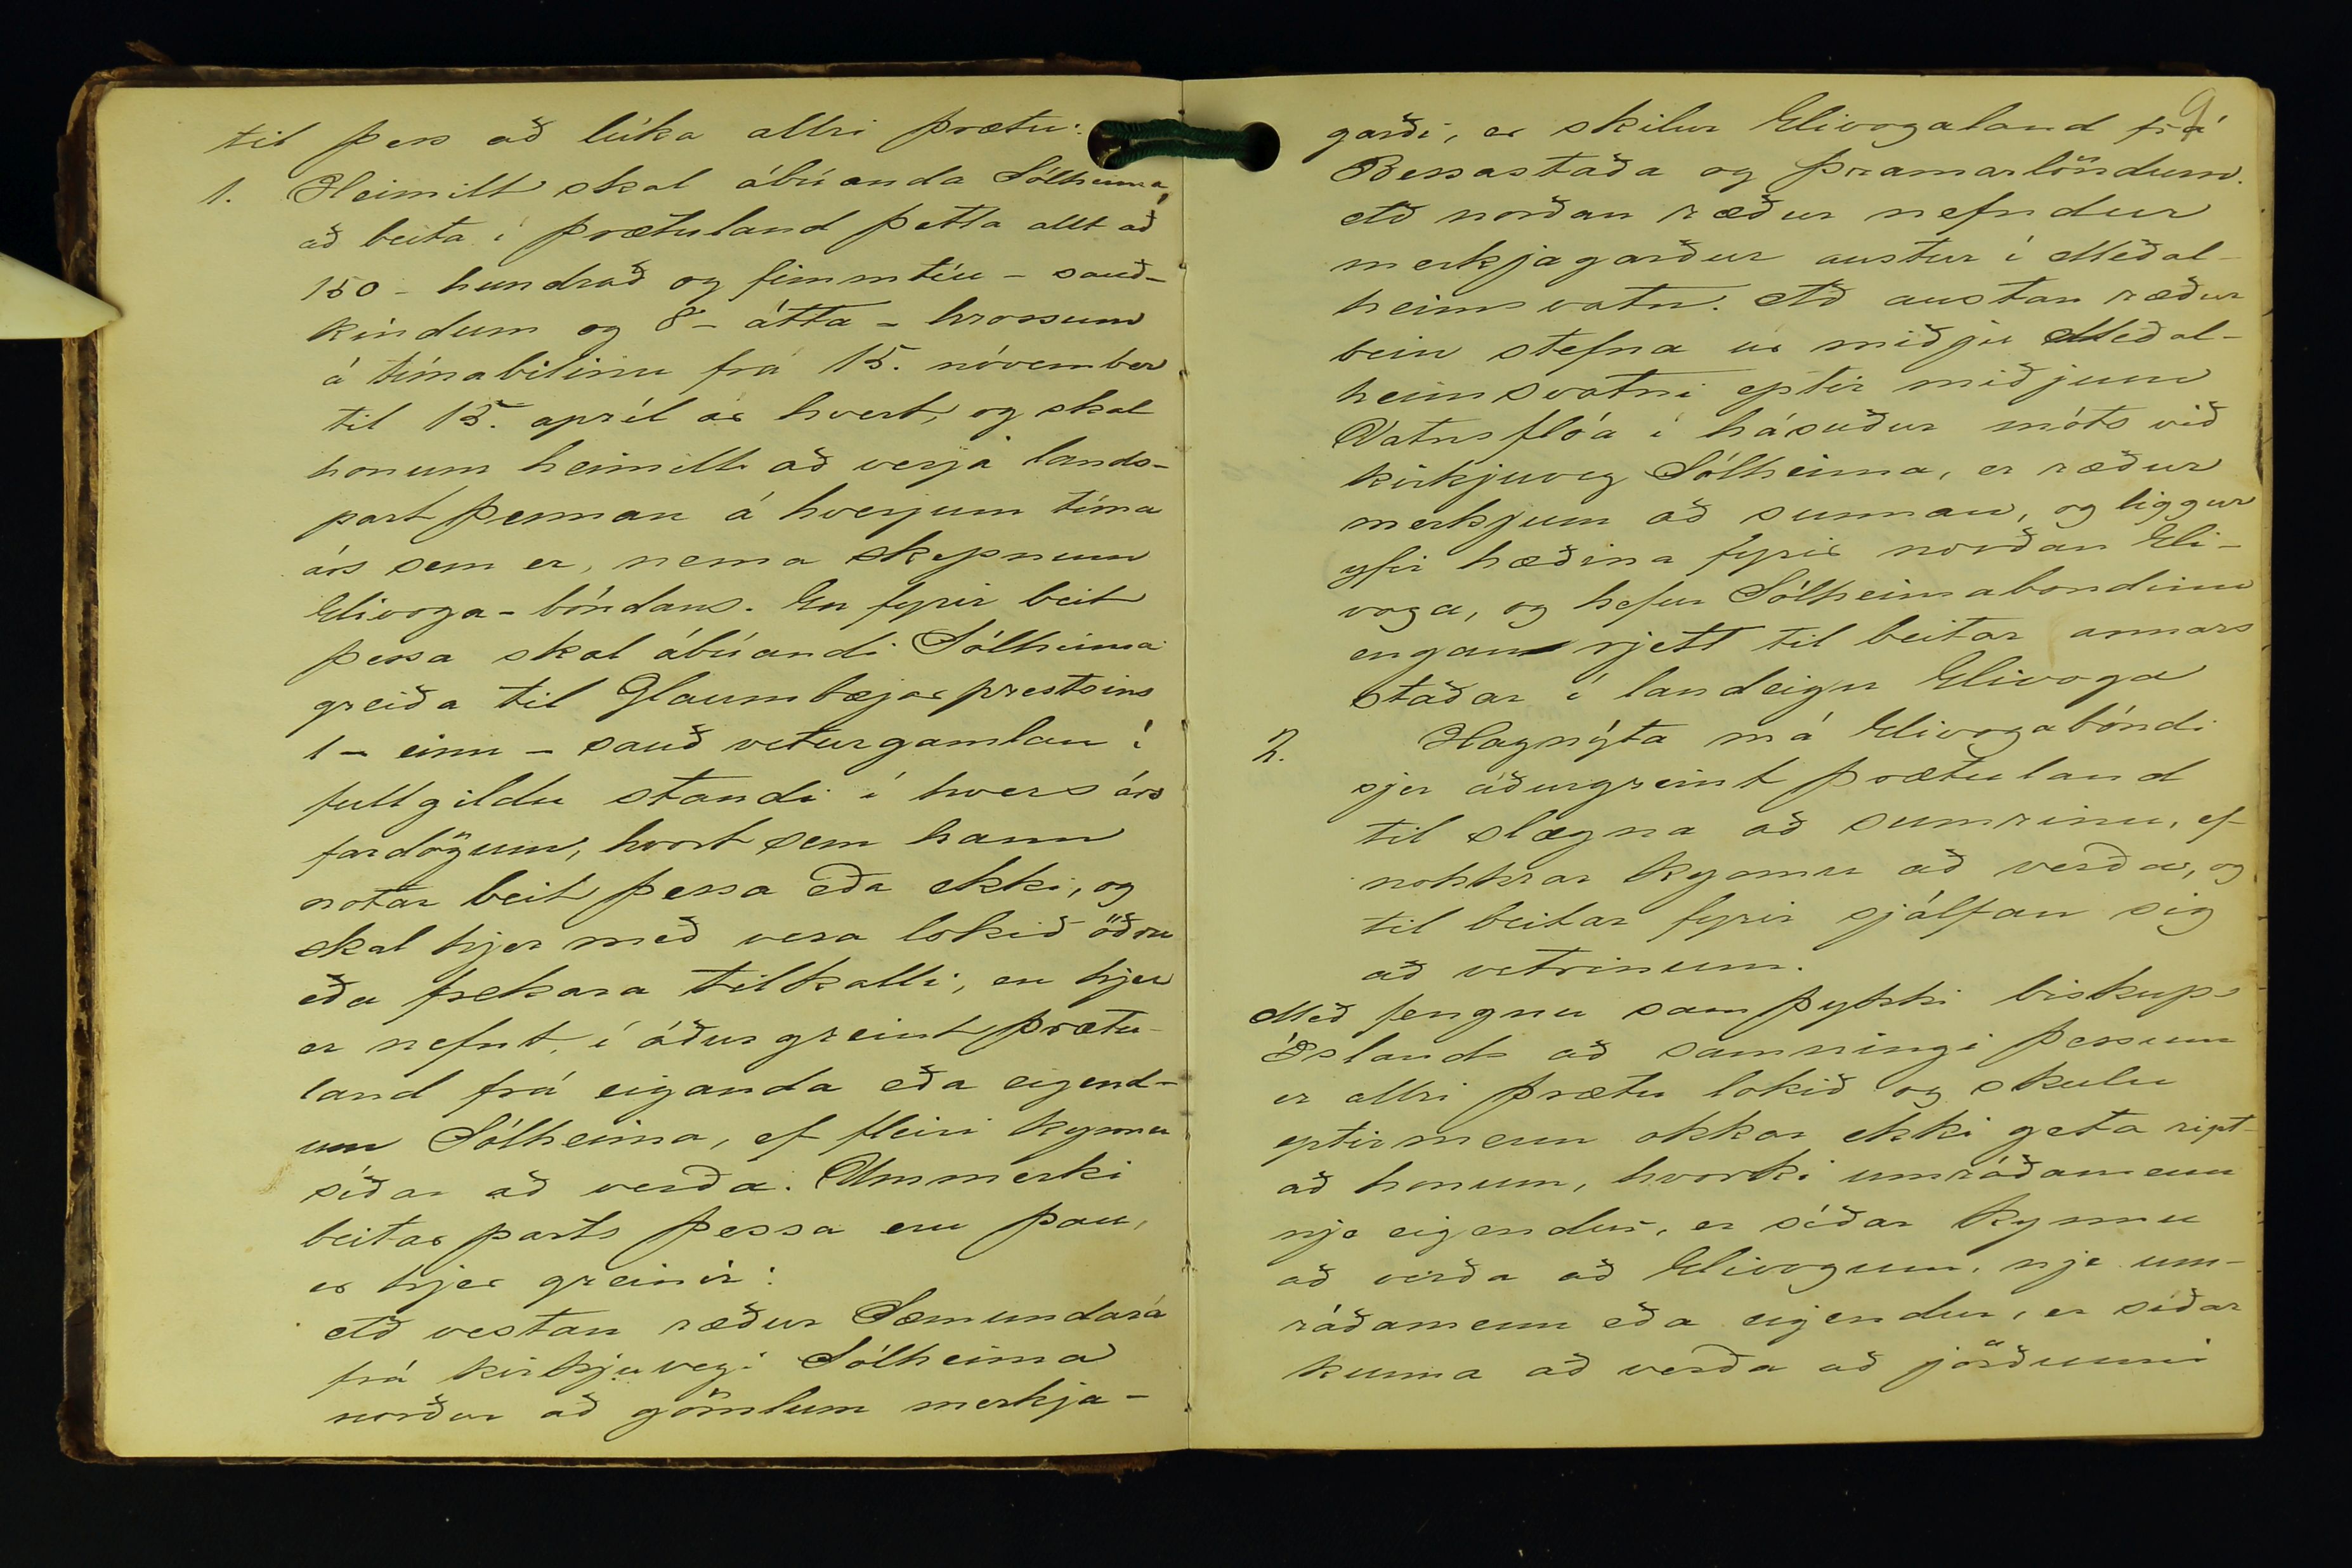 til þess að lúka allri þrætu:
1. Heimilt skal ábúanda Sólheima,
að beita í þrætuland þetta allt að
150 - hundrað og fimmtíu - sauð-
kindum og 8 - átta - hrossum
á tímabilinu frá 15. nóvember
til 15. apríl ár hvert, og skal
honum heimilt að verja lands-
part þennan á hverjum tíma
árs sem er, nema skepnum
Elivoga-bóndans. En fyrir beit
þessa skal ábúandi Sólheima
greiða til Glaumbæjar prestsins
1 - einn - sauð veturgamlan í
fullgildu standi í hvers árs
fardögum, hvort sem hann
notar beit þessa eða ekki, og
skal hjer með vera lokið öðru
eða frekara tilkalli, en hjer
er nefnt, í áðurgreint þrætu-
land frá eiganda eða eigend-
um Sólheima, ef fleiri kynnu
síðar að verða. Ummerki
beitar parts þessa eru þau,
er hjer greinir:
Að vestan ræður Sæmundará
frá kirkjuvegi Sólheima
norður að gömlum merkja-
9
garði, er skilur Elivogaland frá
Bessastaða og Þramarlöndum.
Að norðan ræður nefndur
merkjagarður austur í Meðal-
heimsvatn. Að austan ræður
bein stefna úr miðju Meðal-
heimsvatni eptir miðjum
Vatnsflóa í hásuður móts við
kirkjuveg Sólheima, er ræður
merkjum að sunnan, og liggur
yfir hæðina fyrir norðan Eli-
voga, og hefur Sólheimabondinn
engann rjett til beitar annars
staðar í landeign Elivoga
2. Hagnýta má Elivogabóndi
sjer áðurgreint þrætuland
til slægna að sumrinu, ef
nokkrar kynnu að verða, og
til beitar fyrir sjálfan sig
að vetrinum.
Með fengnu samþykki biskups
Íslands að samningi þessum
er allri þrætu lokið og skulu
eptirmenn okkar ekki geta ript
að honum, hvorki umráðamenn
nje eigendur, er síðar kynnu
að verða að Elivogum, nje um-
ráðamenn eða eigendur, er síðar
kunna að verða að jörðunni